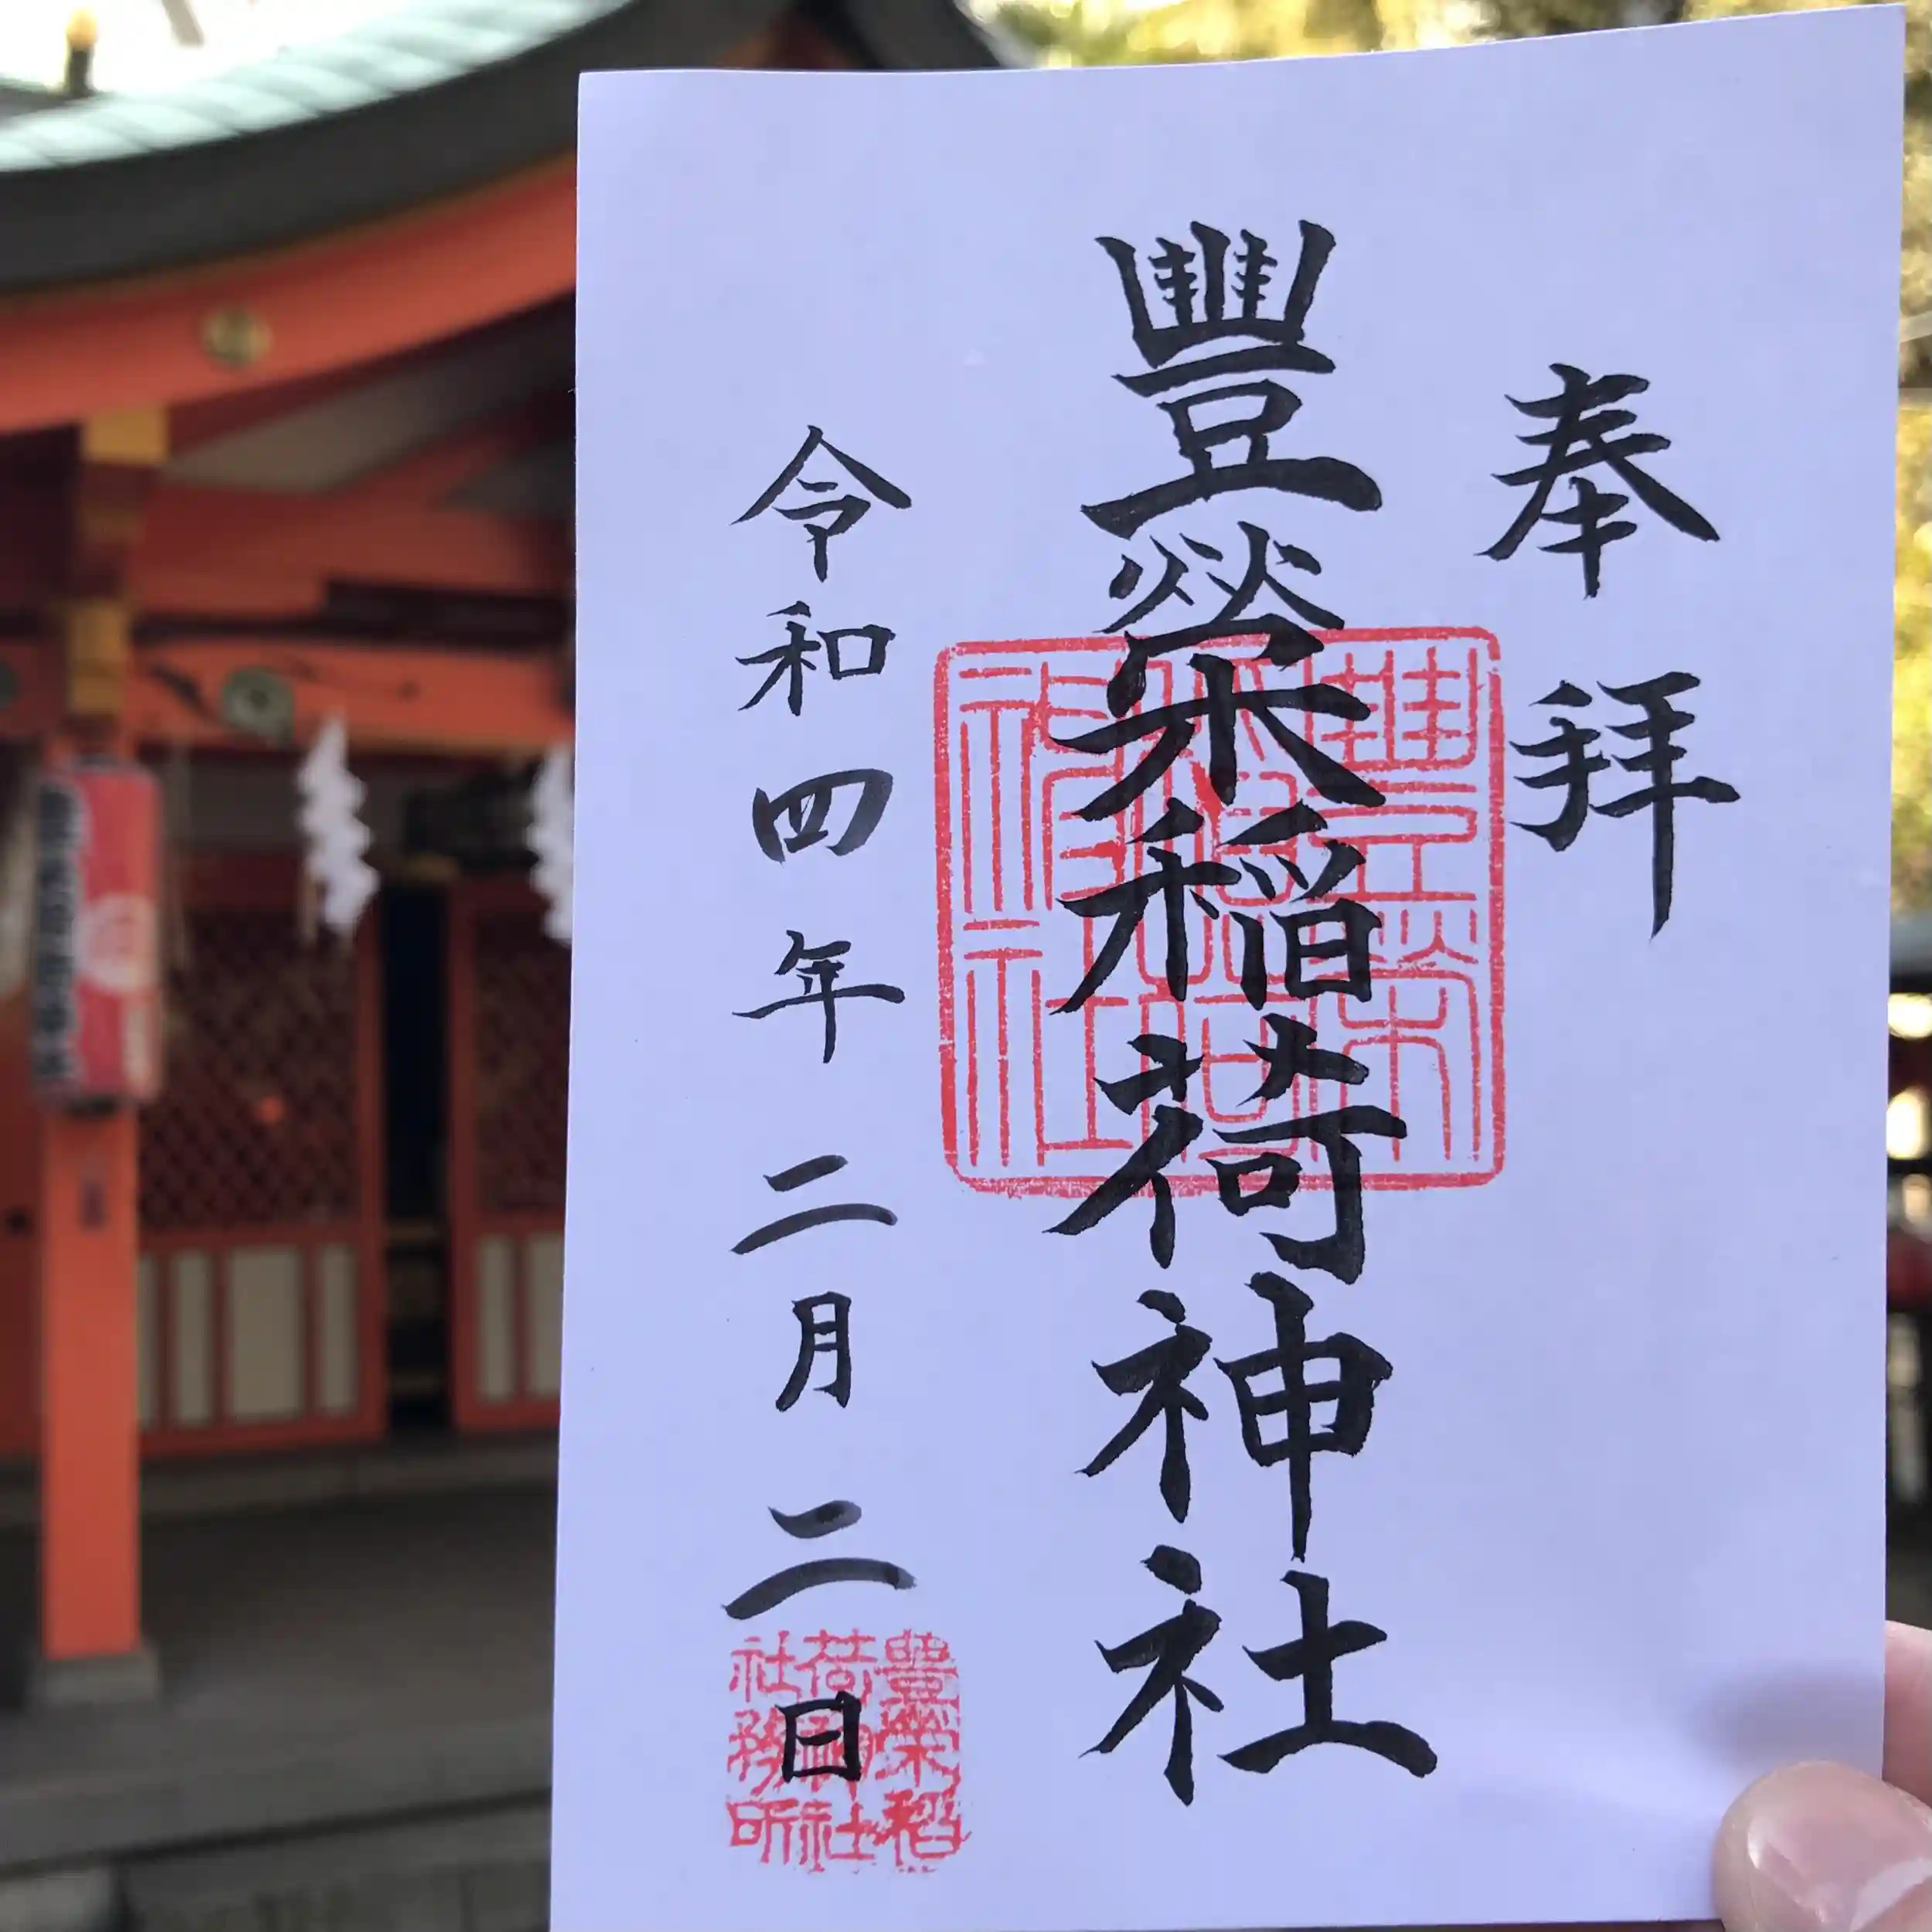 奉拝
豐榮稲荷神社
豊栄稲荷神社
令和四年二月二日
豊榮稲荷神社社務所